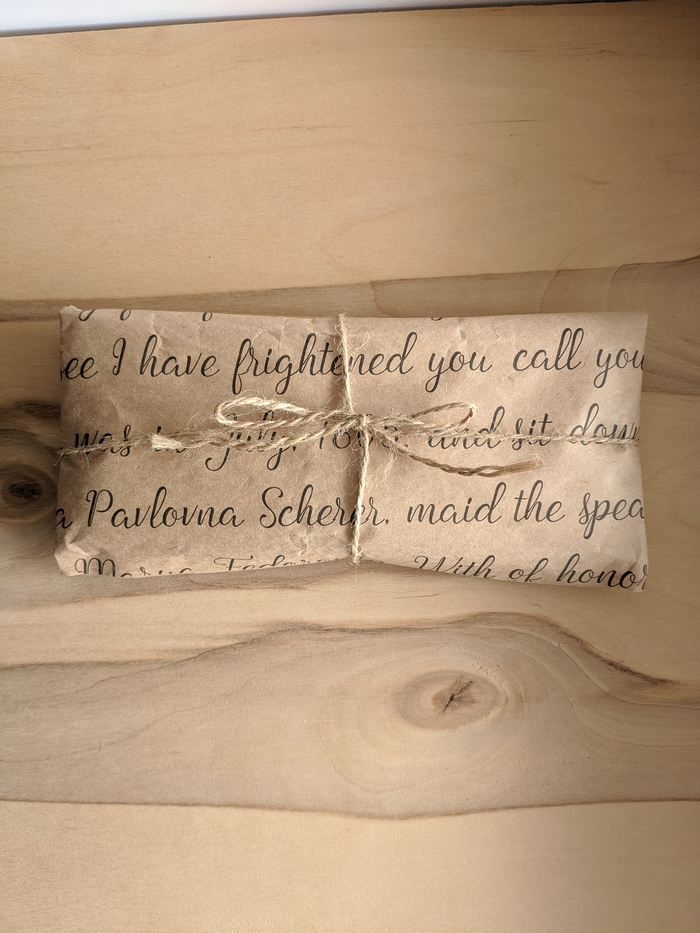 ee I have frightened you call you
was in July, and sit down
a Pavlovna Scherer, maid the spea
With of honor